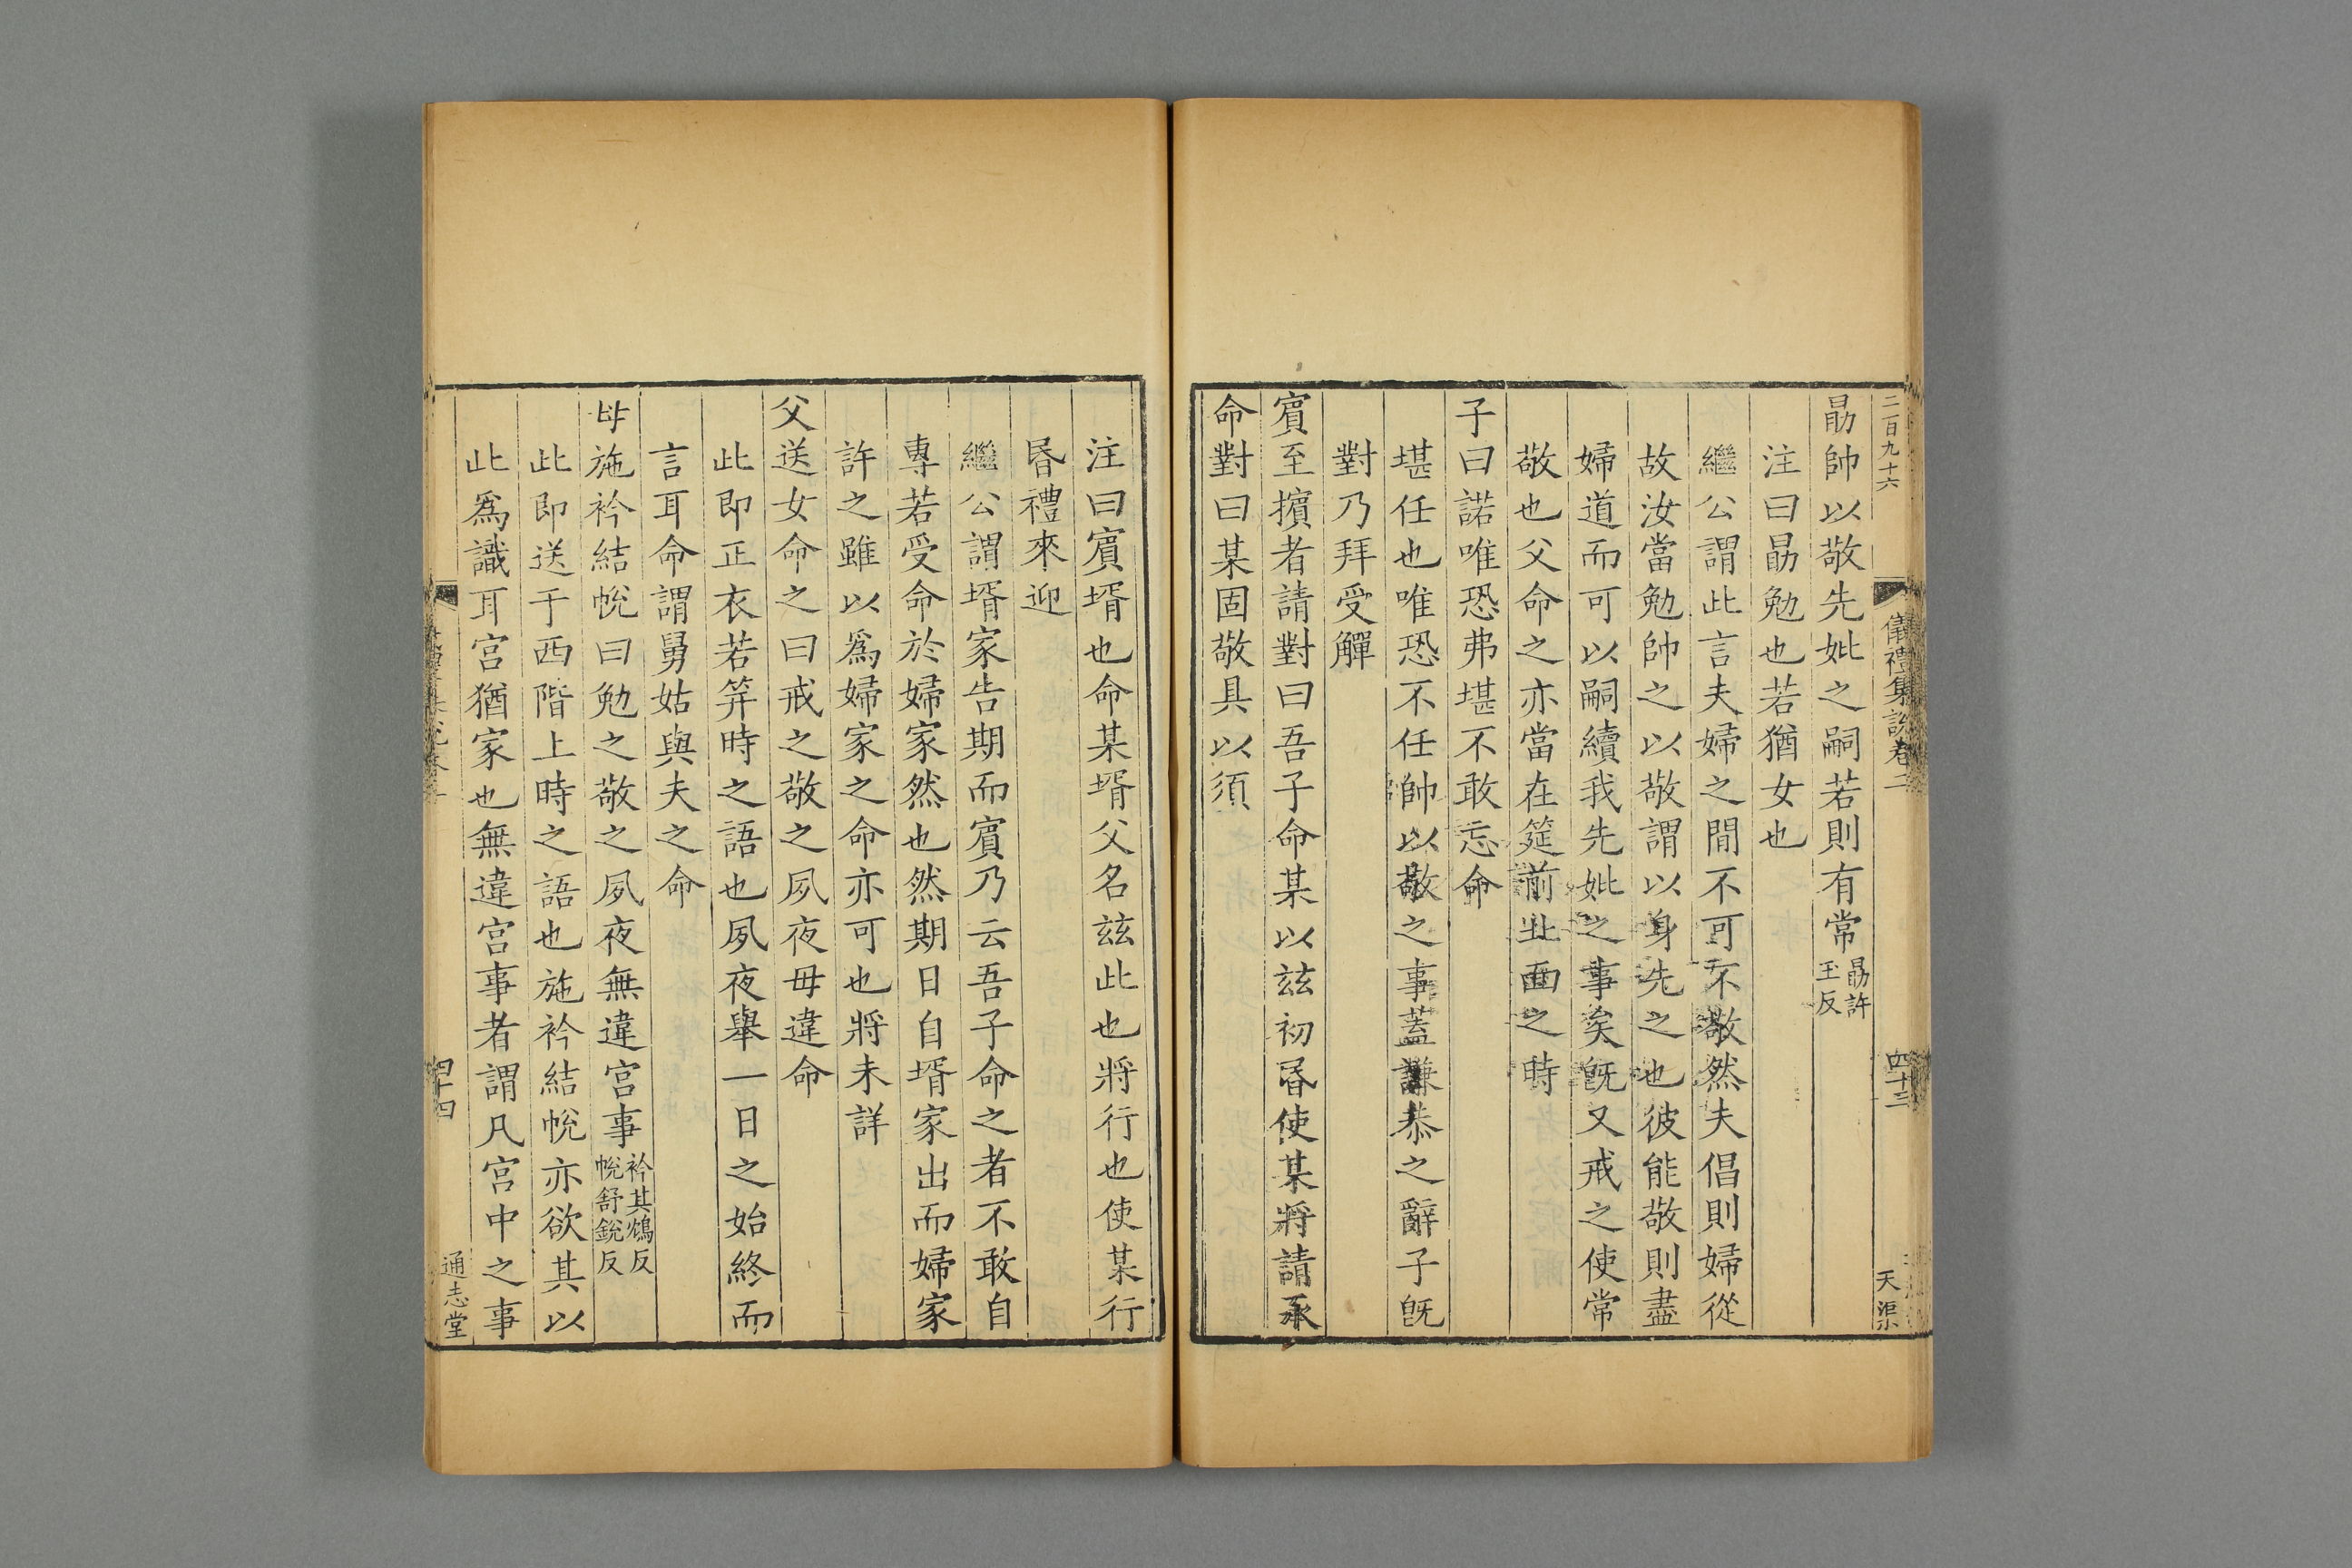 二百九十六
儀禮集說卷二
四十三
天渠
勗帥以敬先妣之嗣若則有常勗許玉反
注曰勗勉也若猶女也
繼公謂此言夫婦之間不可不敬然夫倡則婦從
故汝當勉帥之以敬謂以身先之也彼能敬則盡
婦道而可以嗣續我先妣之事矣旣又戒之使常
敬也父命之亦當在筵前北面之時
子曰諾唯恐弗堪不敢忘命
堪任也唯恐不任帥以敬之事蓋謙恭之辭子旣
對乃拜受觶
賓至擯者請對曰吾子命某以兹初昬使某將請承
命對曰某固敬具以須
注曰賓壻也命某壻父名兹此也將行也使某行
昬禮來迎
繼公謂壻家告期而賓乃云吾子命之者不敢自
專若受命於婦家然也然期日自壻家出而婦家
許之雖以爲婦家之命亦可也將未詳
父送女命之曰戒之敬之夙夜毋違命
此即正衣若笄時之語也夙夜舉一日之始終而
言耳命謂舅姑與夫之命
母施衿結帨曰勉之敬之夙夜無違宮事衿其鴆反帨舒銳反
此即送于西階上時之語也施衿結帨亦欲其以
此爲識耳宮猶家也無違宮事者謂凡宮中之事
四十四
通志堂